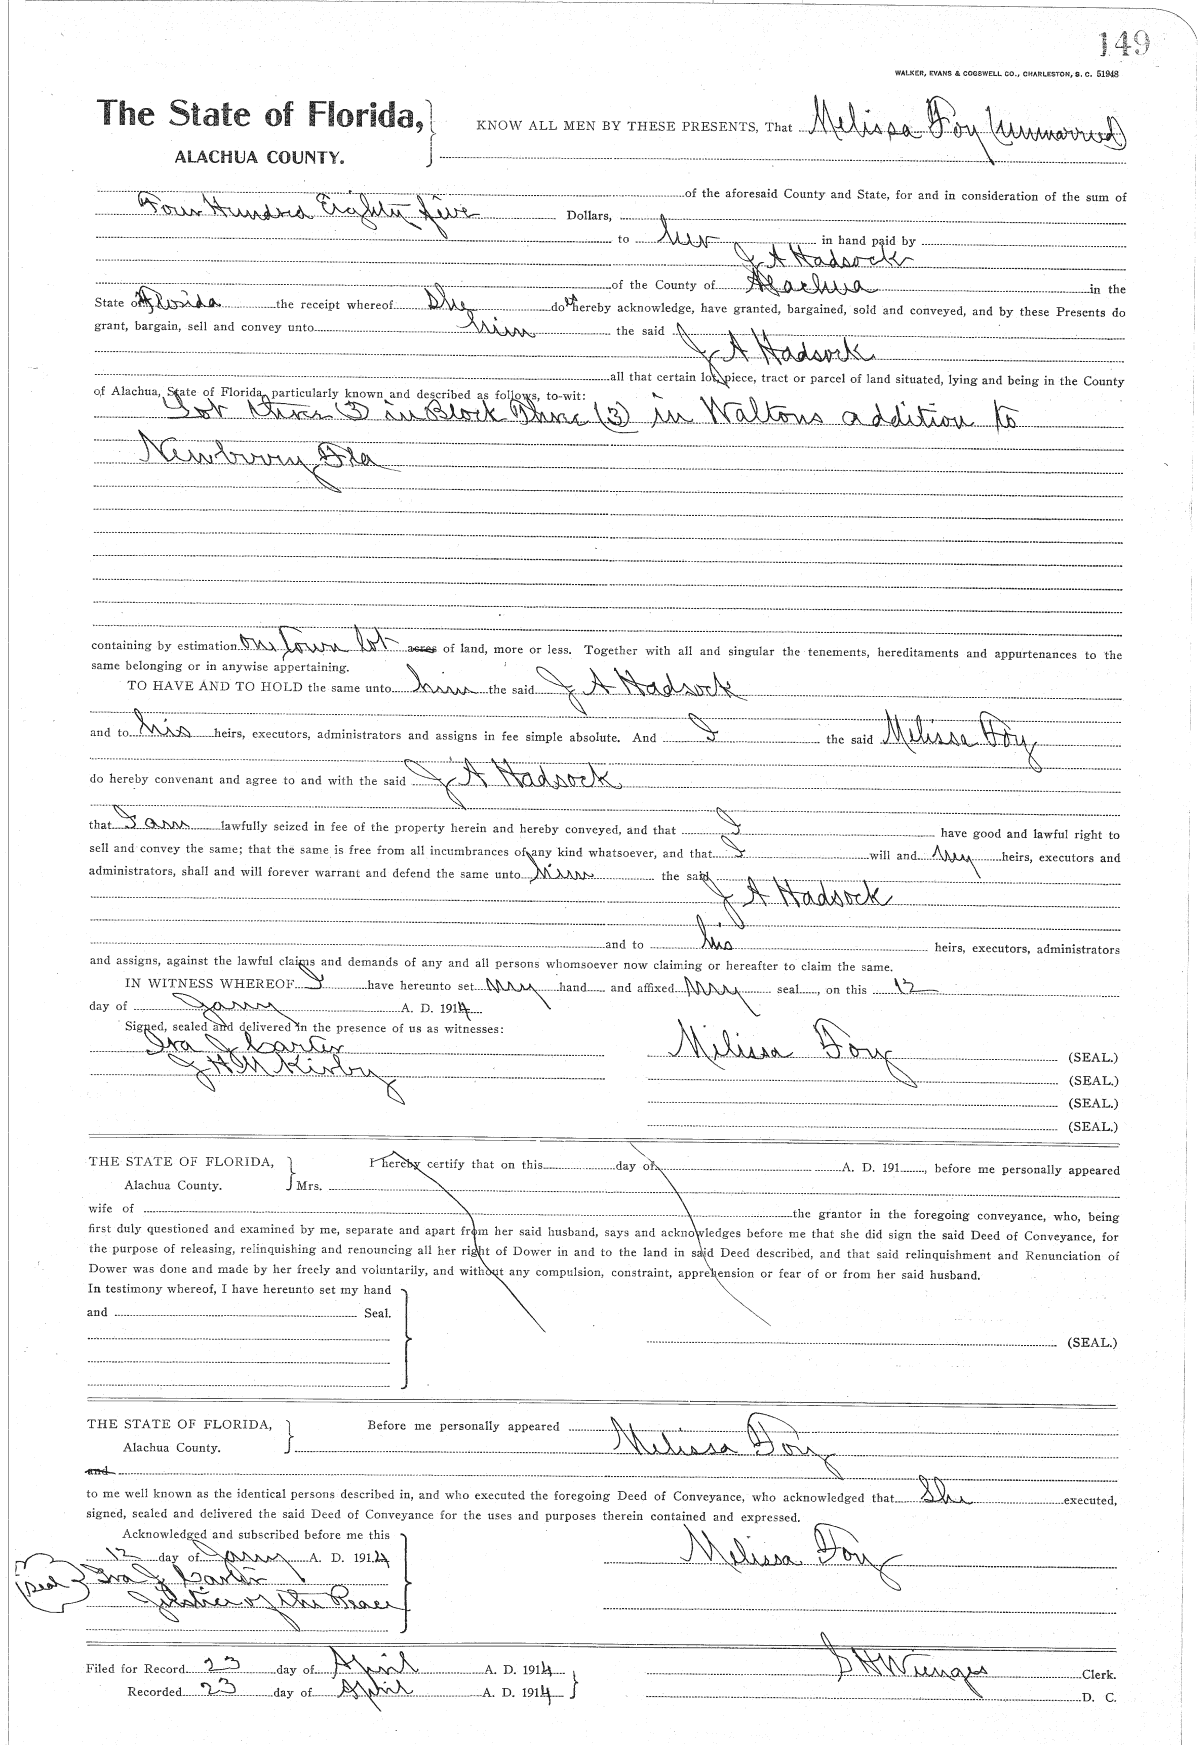 149
WALKER, EVANS & COGSWELL CO., CHARLESTON, S. C. 51948
The State of Florida,
ALACHUA COUNTY.
KNOW ALL MEN BY THESE PRESENTS, That Melissa Foy (Unmarried)
of the aforesaid County and State, for and in consideration of the sum of
Four Hundred Eighty five Dollars,
to her in hand paid by
J A Hadsock
of the County of Alachua in the
State of Florida the receipt whereof She do th hereby acknowledge, have granted, bargained, sold and conveyed, and by these Presents do
grant, bargain, sell and convey unto him the said
J A Hadsock
all that certain lot, piece, tract or parcel of land situated, lying and being in the County
of Alachua, State of Florida, particularly known and described as follows, to-wit:
Lot three (3) in Block Three (3) in Waltons addition to
Newberry Fla
containing by estimation one town lot acres of land, more or less. Together with all and singular the tenements, hereditaments and appurtenances to the
same belonging or in anywise appertaining.
TO HAVE AND TO HOLD the same unto him the said J A Hadsock
and to his heirs, executors, administrators and assigns in fee simple absolute. And I the said Melissa Foy
do hereby convenant and agree to and with the said J A Hadsock
that I am lawfully seized in fee of the property herein and hereby conveyed, and that I have good and lawful right to
sell and convey the same; that the same is free from all incumbrances of any kind whatsoever, and that I will and my heirs, executors and
administrators, shall and will forever warrant and defend the same unto him the said
J A Hadsock
and to his heirs, executors, administrators
and assigns, against the lawful claims and demands of any and all persons whomsoever now claiming or hereafter to claim the same.
IN WITNESS WHEREOF I have hereunto set my hand and affixed my seal, on this 12
day of Jany A. D. 1914
Signed, sealed and delivered in the presence of us as witnesses:
Ira J Carter
J H M Kirby
Melissa Foy (SEAL.)
(SEAL.)
(SEAL.)
(SEAL.)
THE STATE OF FLORIDA,
Alachua County.
I hereby certify that on this day of A. D. 191 , before me personally appeared
Mrs.
wife of the grantor in the foregoing conveyance, who, being
first duly questioned and examined by me, separate and apart from her said husband, says and acknowledges before me that she did sign the said Deed of Conveyance, for
the purpose of releasing, relinquishing and renouncing all her right of Dower in and to the land in said Deed described, and that said relinquishment and Renunciation of
Dower was done and made by her freely and voluntarily, and without any compulsion, constraint, apprehension or fear of or from her said husband.
In testimony whereof, I have hereunto set my hand
and Seal.
(SEAL.)
THE STATE OF FLORIDA,
Alachua County.
Before me personally appeared Melissa Foy
and
to me well known as the identical persons described in, and who executed the foregoing Deed of Conveyance, who acknowledged that She executed,
signed, sealed and delivered the said Deed of Conveyance for the uses and purposes therein contained and expressed.
Acknowledged and subscribed before me this
12 day of Jany A. D. 1914
Seal
Ira J Carter
Justice of the Peace
Melissa Foy
Filed for Record 23 day of April A. D. 1914
Recorded 23 day of April A. D. 1914
S H Wienges Clerk.
D. C.